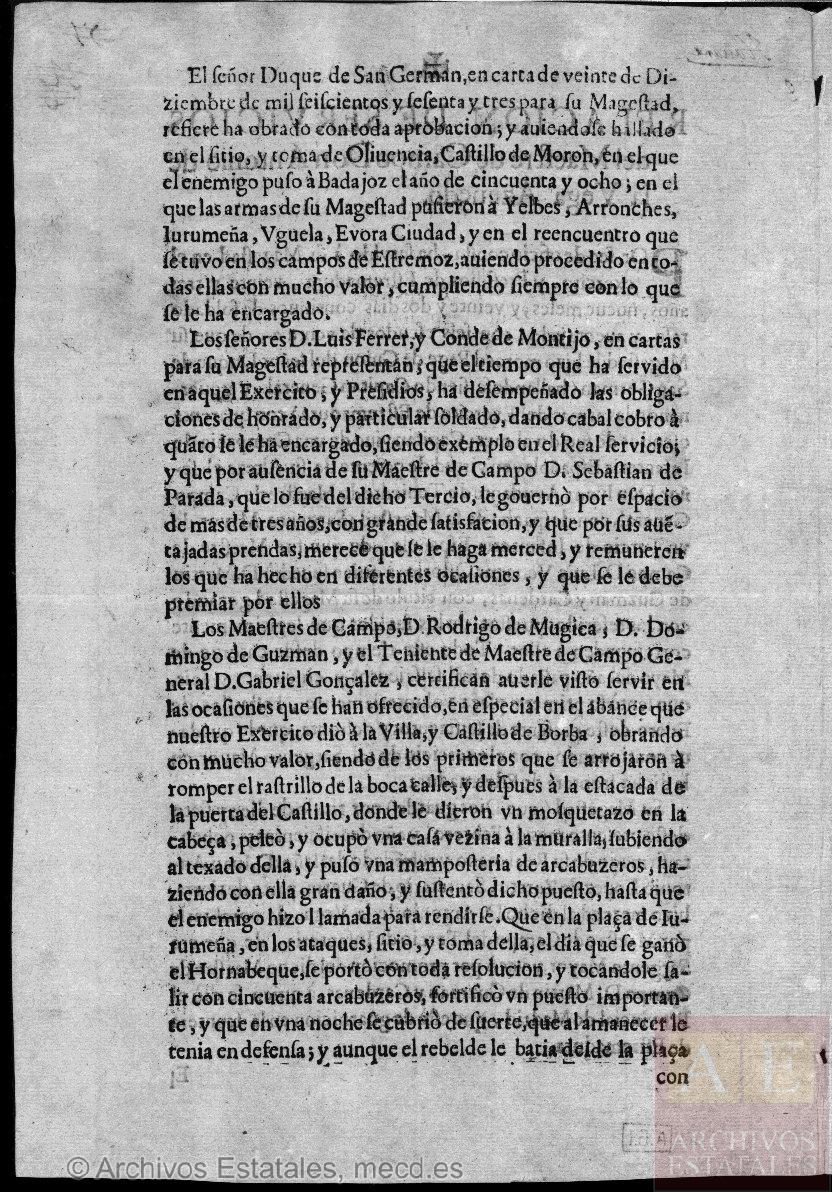 El señor Duque de San German, en carta de veinte de Di-
ziembre de mil seiscientos y sesenta y tres para su Magestad,
refiere ha obrado con toda aprobacion; y auiendose hallado
en el sitio, y toma de Oliuencia, Castillo de Moron, en el que
el enemigo puso à Badajoz el año de cincuenta y ocho; en el
que las armas de su Magestad pusieron à Yelbes, Arronches,
Iurumeña, Vguela, Evora Ciudad, y en el reencuentro que
se tuvo en los campos de Estremoz, auiendo procedido en to-
das ellas con mucho valor, cumpliendo siempre con lo que
se le ha encargado.
Los señores D. Luis Ferrer, y Conde de Montijo, en cartas
para su Magestad representan, que el tiempo que ha servido
en aquel Exercito, y Presidios, ha desempeñado las obliga-
ciones de honrado, y particular soldado, dando cabal cobro à
quãto se le ha encargado, siendo exemplo en el Real servicio;
y que por ausencia de su Maestre de Campo D. Sebastian de
Parada, que lo fue del dicho Tercio, le governò por espacio
de mas de tres años, con grande satisfacion, y que por sus auẽ-
tajadas prendas, merece que se le haga merced, y remuneren
los que ha hecho en diferentes ocasiones, y que se le debe
premiar por ellos
Los Maestres de Campo, D. Rodrigo de Mugica, D. Do-
mingo de Guzman, y el Teniente de Maestre de Campo Ge-
neral D. Gabriel Gonçalez, certifican auerle visto servir en
las ocasiones que se han ofrecido, en especial en el abance que
nuestro Exercito diò à la Villa, y Castillo de Borba, obrando
con mucho valor, siendo de los primeros que se arrojaron à
romper el rastrillo de la boca calle, y despues à la estacada de
la puerta del Castillo, donde le dieron vn mosquetazo en la
cabeça, peleò, y ocupò vna casa vezina à la muralla, subiendo
al texado della, y puso vna mamposteria de arcabuzeros, ha-
ziendo con ella gran daño, y sustentò dicho puesto, hasta que
el enemigo hizo llamada para rendirse. Que en la plaça de Iu-
rumeña, en los ataques, sitio, y toma della, el dia que se ganò
el Hornabeque, se portò con toda resolucion, y tocandole sa-
lir con cincuenta arcabuzeros, fortificò vn puesto importan-
te, y que en vna noche se cubriò de suerte, que al amanecer le
tenia en defensa; y aunque el rebelde le batia desde la plaça
con
A E
ARCHIVOS
ESTATALES
© Archivos Estatales, mecd.es